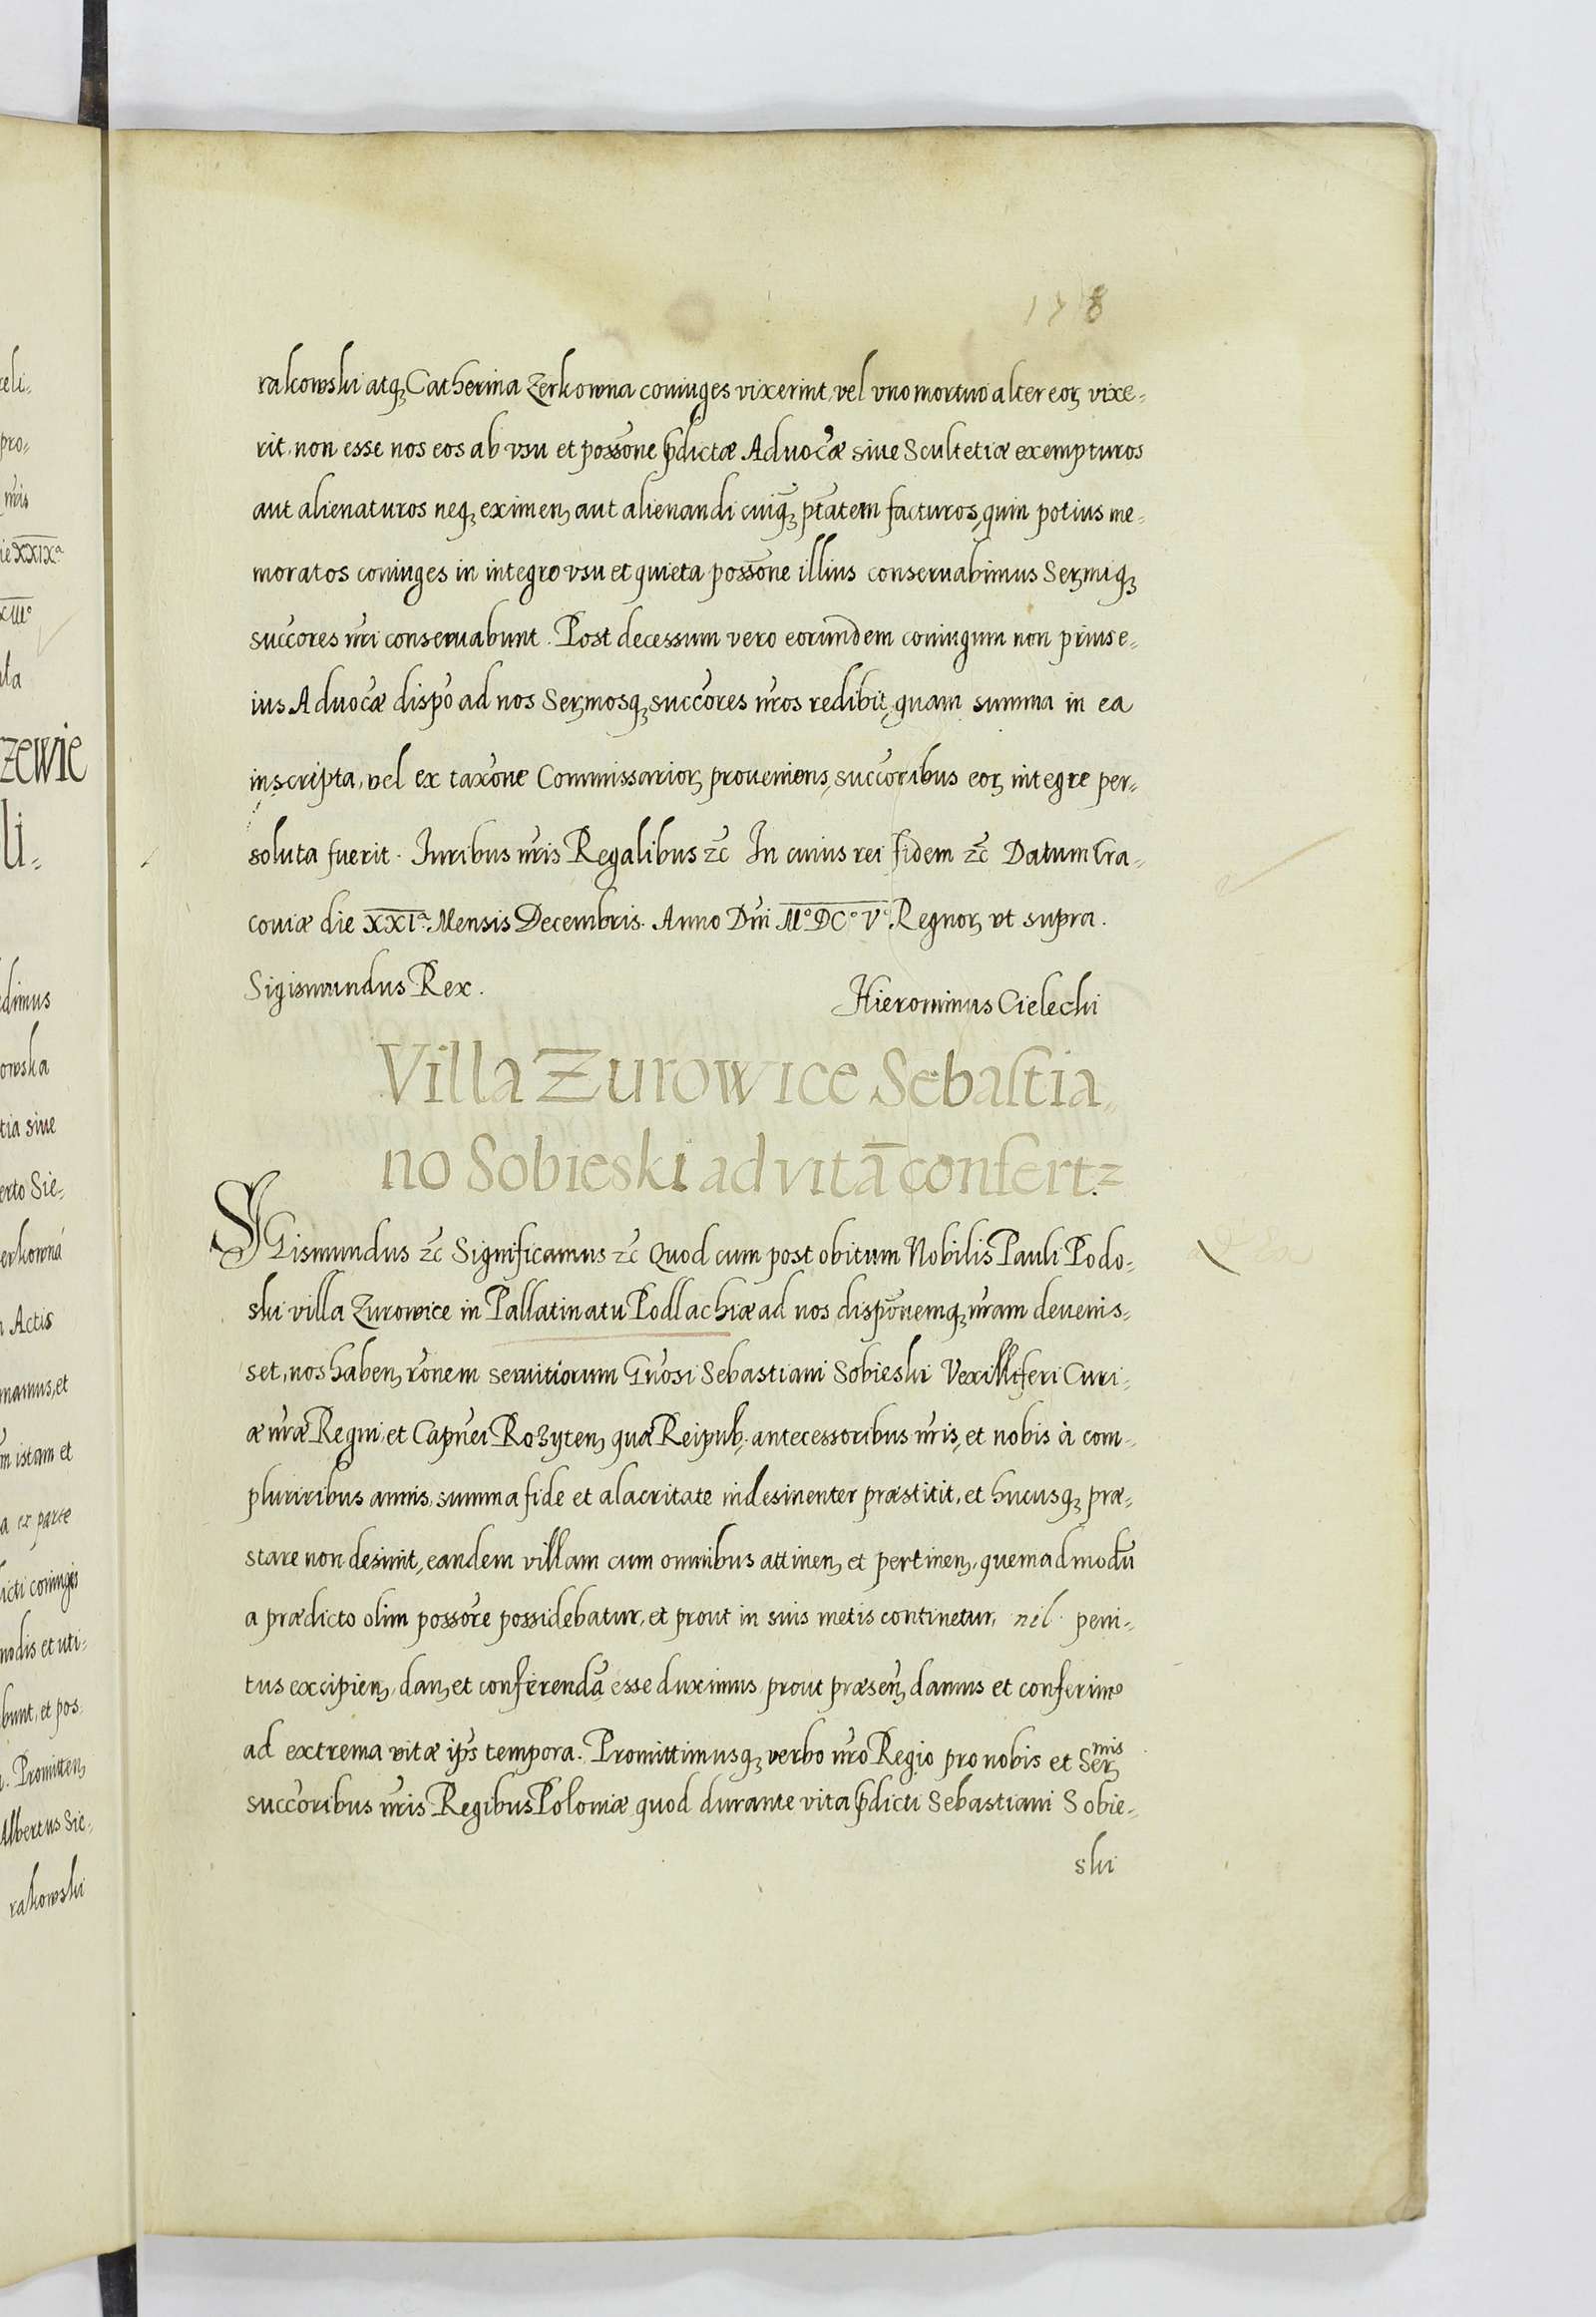 178
rakowski atq₃ Catherina Zerkowna coniuges vixerint, vel vno mortuo alter eoꝝ vixe-
rit, non esse nos eos ab vsu et possõne p̱dictæ Aduocãæ siue Scultetiæ exempturos
aut alienaturos neq₃ eximen₃ aut alienandi cuiq̃₃ ptãtem facturos, quin potius me-
moratos coniuges in integro vsu et quieta possõne illius conseruabimus Ser₃miq₃
succores nr̃i conseruabunt. Post decessum vero eorundem coniugum non prius e-
ius Aduocãæ dispõ ad nos Ser₃mosq₃ succores nr̃os redibit, quam summa in ea
inscripta, vel ex taxõne Commissarioꝝ proueniens, succoribus eoꝝ integre per-
soluta fuerit. Iuribus nr̃is Regalibus zc̃ In cuius rei fidem zc̃ Datum Cra-
couiæ die XXIª. Mensis Decembris. Anno Dñi Mº DCº Vº. Regnoꝝ vt supra.
Sigismundus Rex. Hieronimus Cielecki
Villa Zurowice Sebastia-
no Sobieski ad vitã confert.
SIGismundus zc̃ Significamus zc̃ Quod cum post obitum Nobilis Pauli Podo-
ski villa Zurowice in Pallatinatu Podlachiæ ad nos dispõnemq₃ nr̃am deuenis-
set, nos haben₃ rõnem seruitiorum Gñosi Sebastiani Sobieski Vexilliferi Curi-
æ nr̃æ Regni, et Capnẽi Rozyten₃ quæ Reipub. antecessoribus nr̃is, et nobis à com-
pluriribus annis, summa fide et alacritate indesinenter præstitit, et hucusq₃ præ-
stare non desinit, eandem villam cum omnibus attinen₃ et pertinen₃, quemadmodũ
a prædicto olim possõre possidebatur, et prout in suis metis continetur, nil peni-
tus excipien₃, dan₃ et conferendã esse duximus, prout præsen̄₃ damus et conferimꝰ
ad extrema vitæ ipỹs tempora. Promittimusq₃ verbo nr̃o Regio pro nobis et Ser₃mis
succoribus nr̃is Regibus Poloniæ, quod durante vita p̱dicti Sebastiani Sobie-
ski